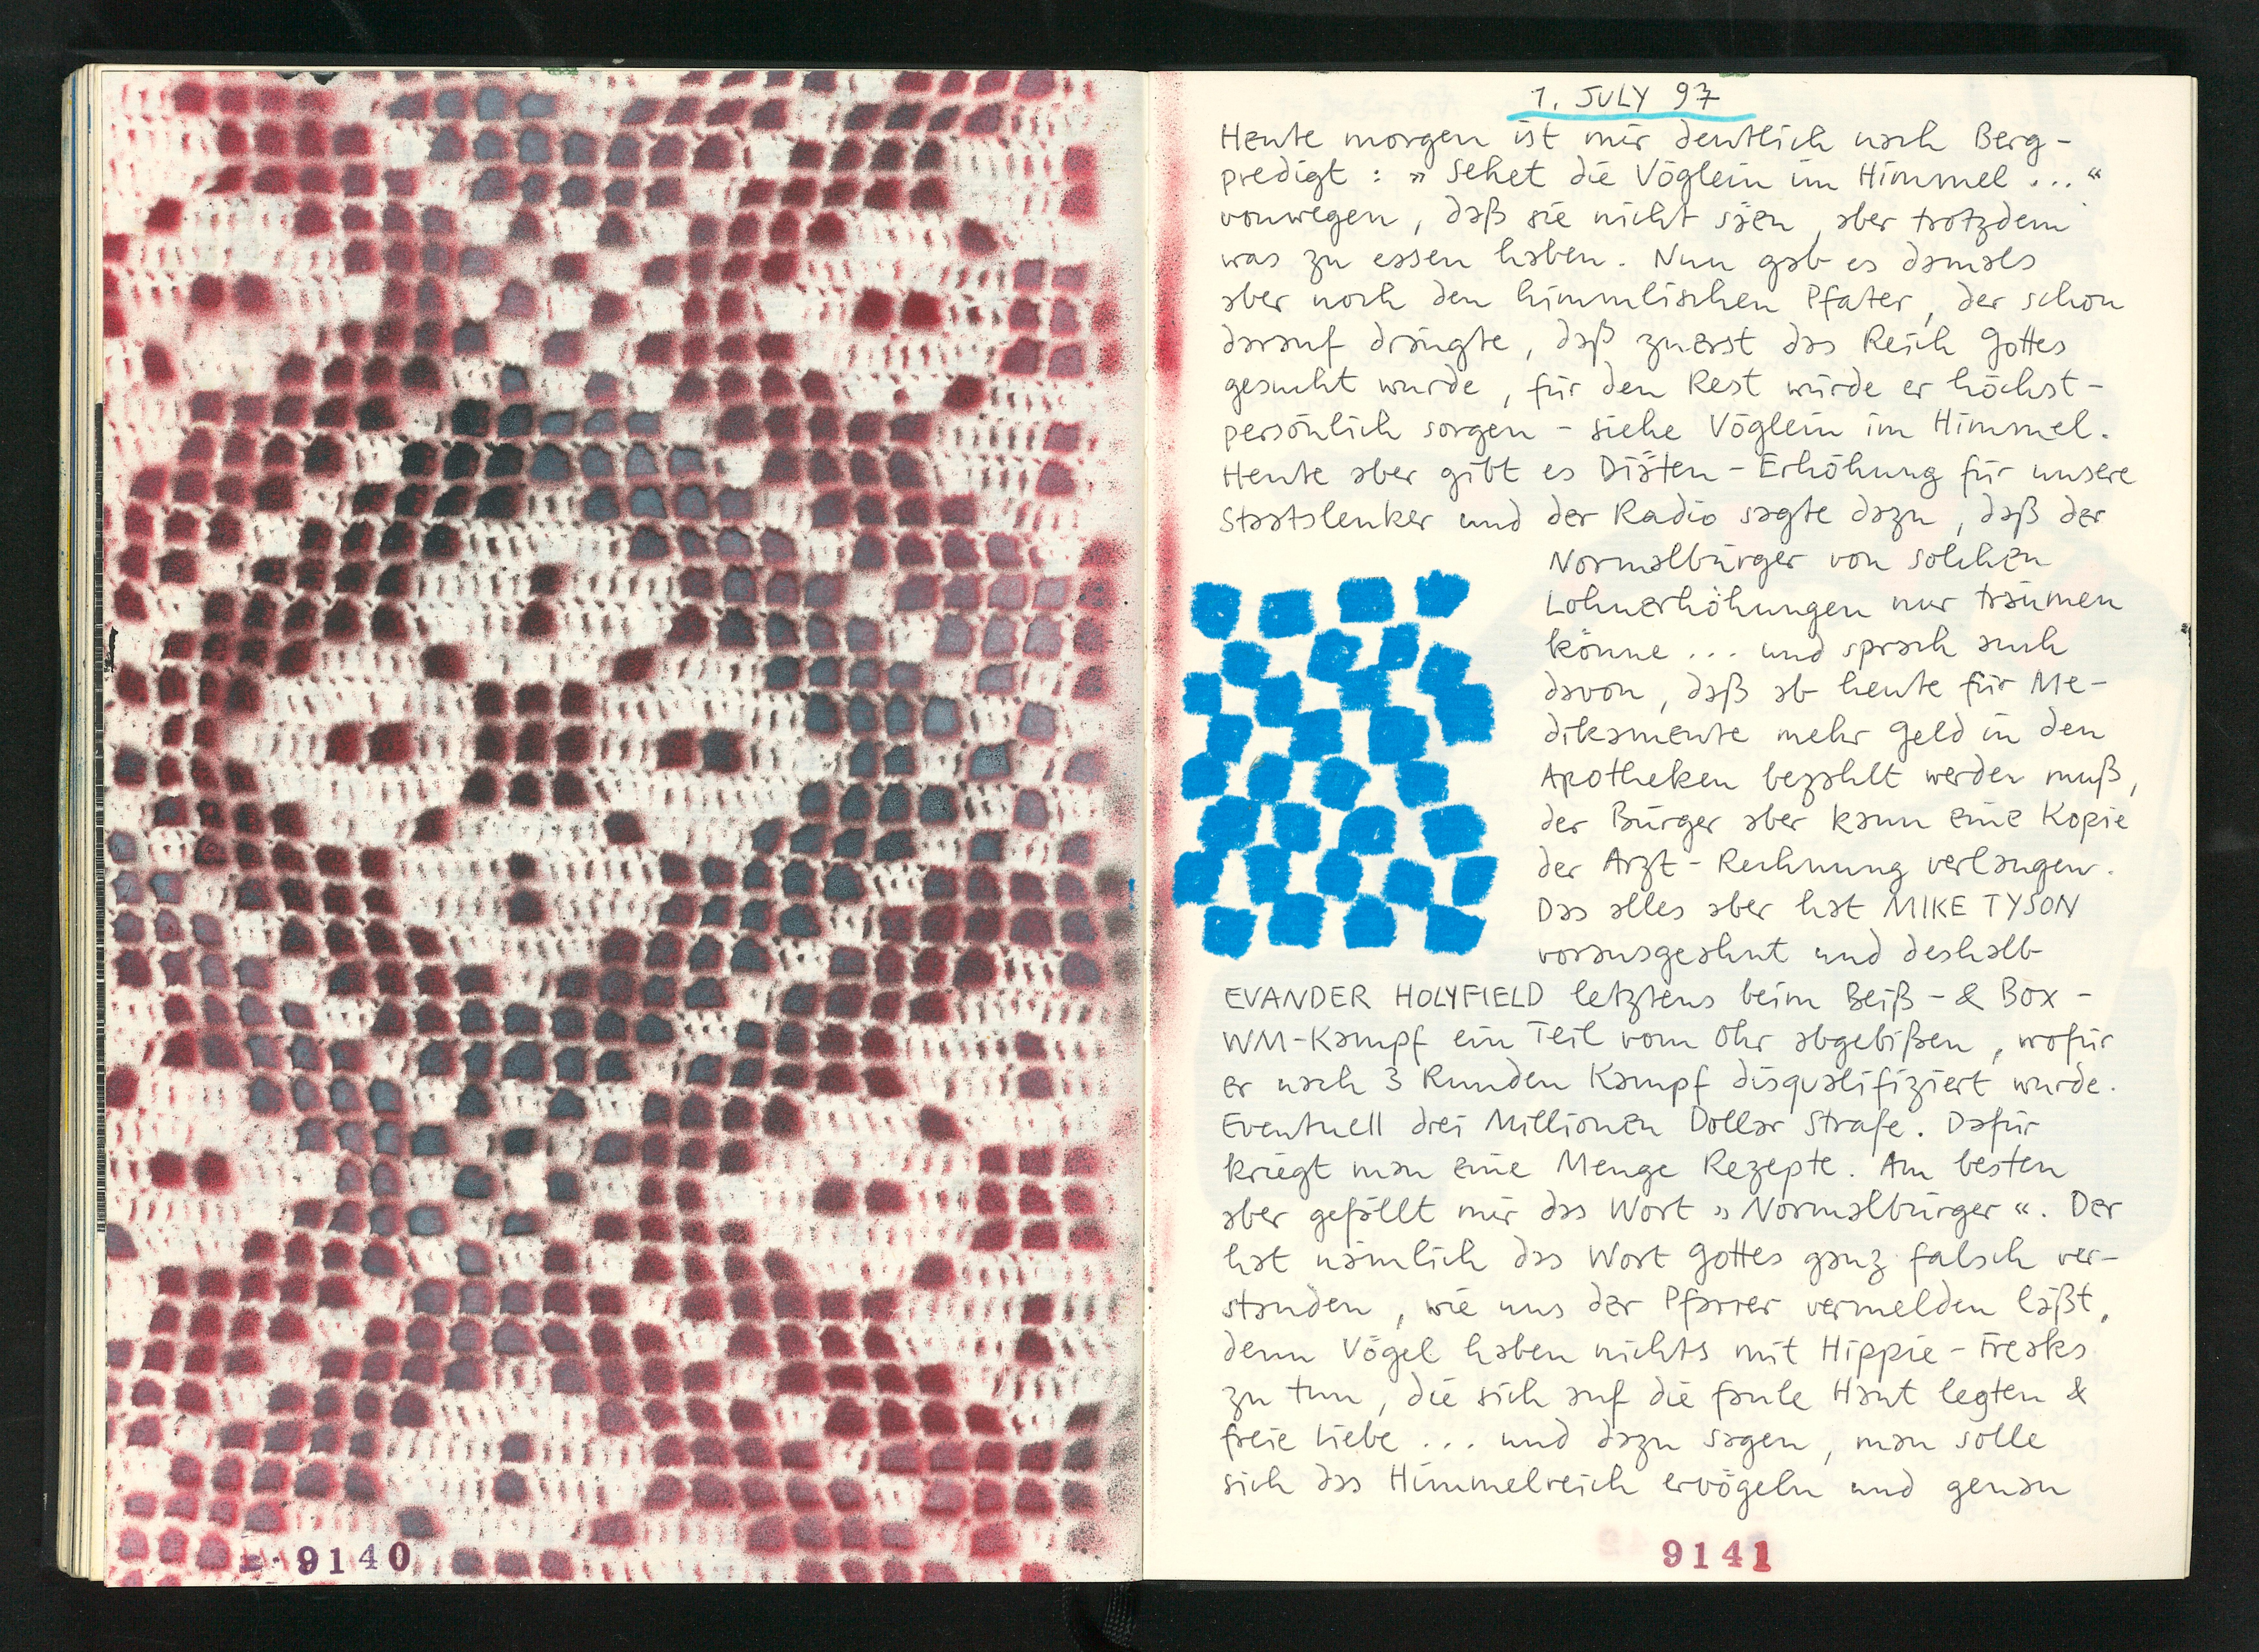 9140
1. JULY 97
Heute morgen ist mir deutlich nach Berg-
predigt : » Sehet die Vöglein im Himmel ... “
vonwegen, daß sie nicht säen, aber trotzdem
was zu essen haben. Nun gab es damals
aber noch den himmlischen Pfater, der schon
darauf drängte, daß zuerst das Reich Gottes
gesucht wurde, für den Rest würde er höchst-
persönlich sorgen - siehe Vöglein im Himmel.
Heute aber gibt es Diäten - Erhöhung für unsere
Staatslenker und der Radio sagte dazu, daß der
Normalbürger von solchen
Lohnerhöhungen nur träumen
könne ... und sprach auch
davon, daß ab heute für Me-
dikamente mehr Geld in den
Apotheken bezahlt werden muß,
der Bürger aber kann eine Kopie
der Arzt - Rechnung verlangen.
Das alles aber hat MIKE TYSON
vorausgeahnt und deshalb
EVANDER HOLYFIELD letztens beim Beiß - & Box -
WM-Kampf ein Teil vom Ohr abgebißen, wofür
er nach 3 Runden Kampf disqualifiziert wurde.
Eventuell drei Millionen Dollar Strafe. Dafür
kriegt man eine Menge Rezepte. Am besten
aber gefällt mir das Wort » Normalbürger «. Der
hat nämlich das Wort Gottes ganz falsch ver-
standen, wie uns der Pfarrer vermelden läßt,
denn Vögel haben nichts mit Hippie - Freaks
zu tun, die sich auf die faule Haut legten &
freie Liebe ... und dazu sagen, man solle
sich das Himmelreich ervögeln und genau
9141